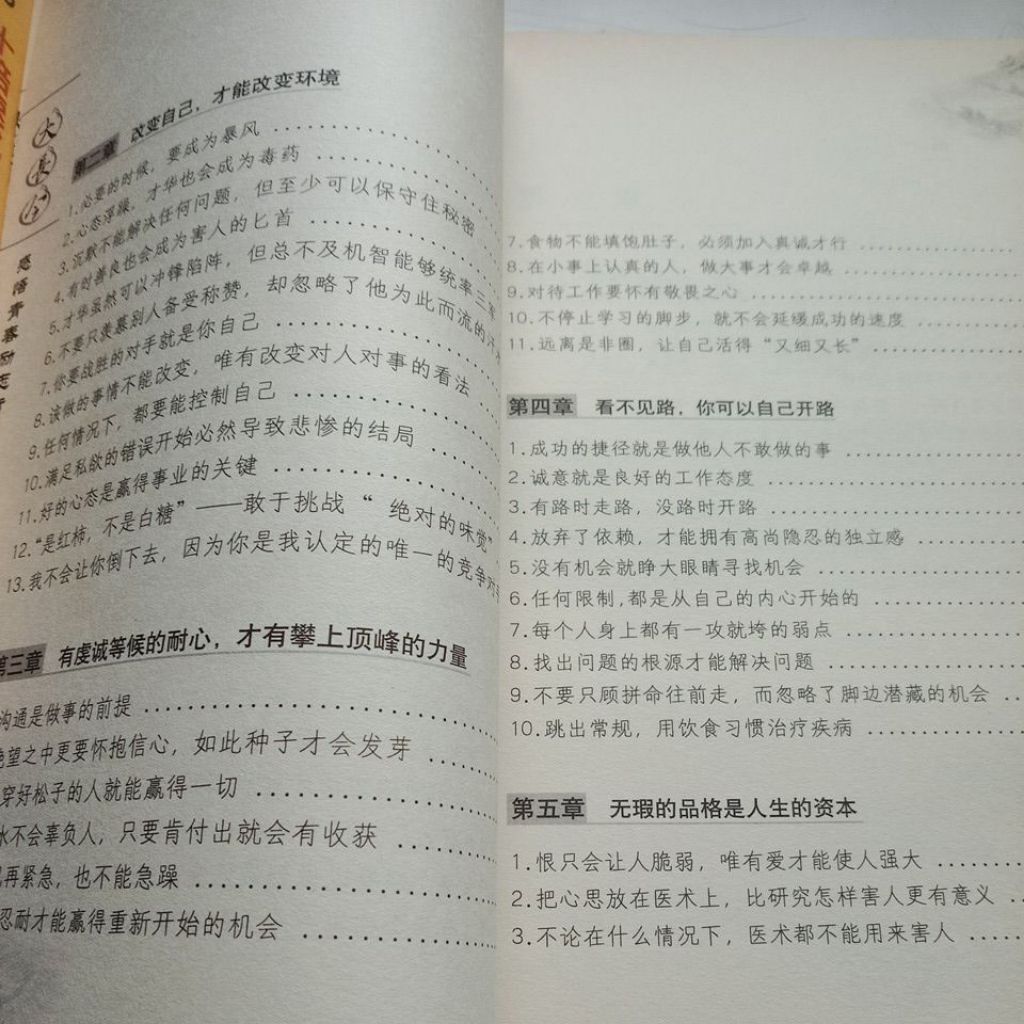 大长今
第二章 改变自己，才能改变环境
1.必要的时候，要成为暴风
2.心态浮躁，才华也会成为毒药
3.沉默不能解决任何问题，但至少可以保守住秘密
4.有时善良也会成为害人的匕首
5.才华虽然可以冲锋陷阵，但总不及机智能够统率三军
6.不要只羡慕别人备受称赞，却忽略了他为此而流的汗水
7.你要战胜的对手就是你自己
8.该做的事情不能改变，唯有改变对人对事的看法
9.任何情况下，都要能控制自己
10.满足私欲的错误开始必然导致悲惨的结局
11.好的心态是赢得事业的关键
12.“是红柿，不是白糖”——敢于挑战“绝对的味觉”
13.我不会让你倒下去，因为你是我认定的唯一的竞争对
第三章 有虔诚等候的耐心，才有攀上顶峰的力量
沟通是做事的前提
绝望之中更要怀抱信心，如此种子才会发芽
穿好松子的人就能赢得一切
水不会辜负人，只要肯付出就会有收获
再紧急，也不能急躁
忍耐才能赢得重新开始的机会
7.食物不能填饱肚子，必须加入真诚才行
8.在小事上认真的人，做大事才会卓越
9.对待工作要怀有敬畏之心
10.不停止学习的脚步，就不会延缓成功的速度
11.远离是非圈，让自己活得“又细又长”
第四章 看不见路，你可以自己开路
1.成功的捷径就是做他人不敢做的事
2.诚意就是良好的工作态度
3.有路时走路，没路时开路
4.放弃了依赖，才能拥有高尚隐忍的独立感
5.没有机会就睁大眼睛寻找机会
6.任何限制,都是从自己的内心开始的
7.每个人身上都有一攻就垮的弱点
8.找出问题的根源才能解决问题
9.不要只顾拼命往前走，而忽略了脚边潜藏的机会
10.跳出常规，用饮食习惯治疗疾病
第五章 无瑕的品格是人生的资本
1.恨只会让人脆弱，唯有爱才能使人强大
2.把心思放在医术上，比研究怎样害人更有意义
3.不论在什么情况下，医术都不能用来害人